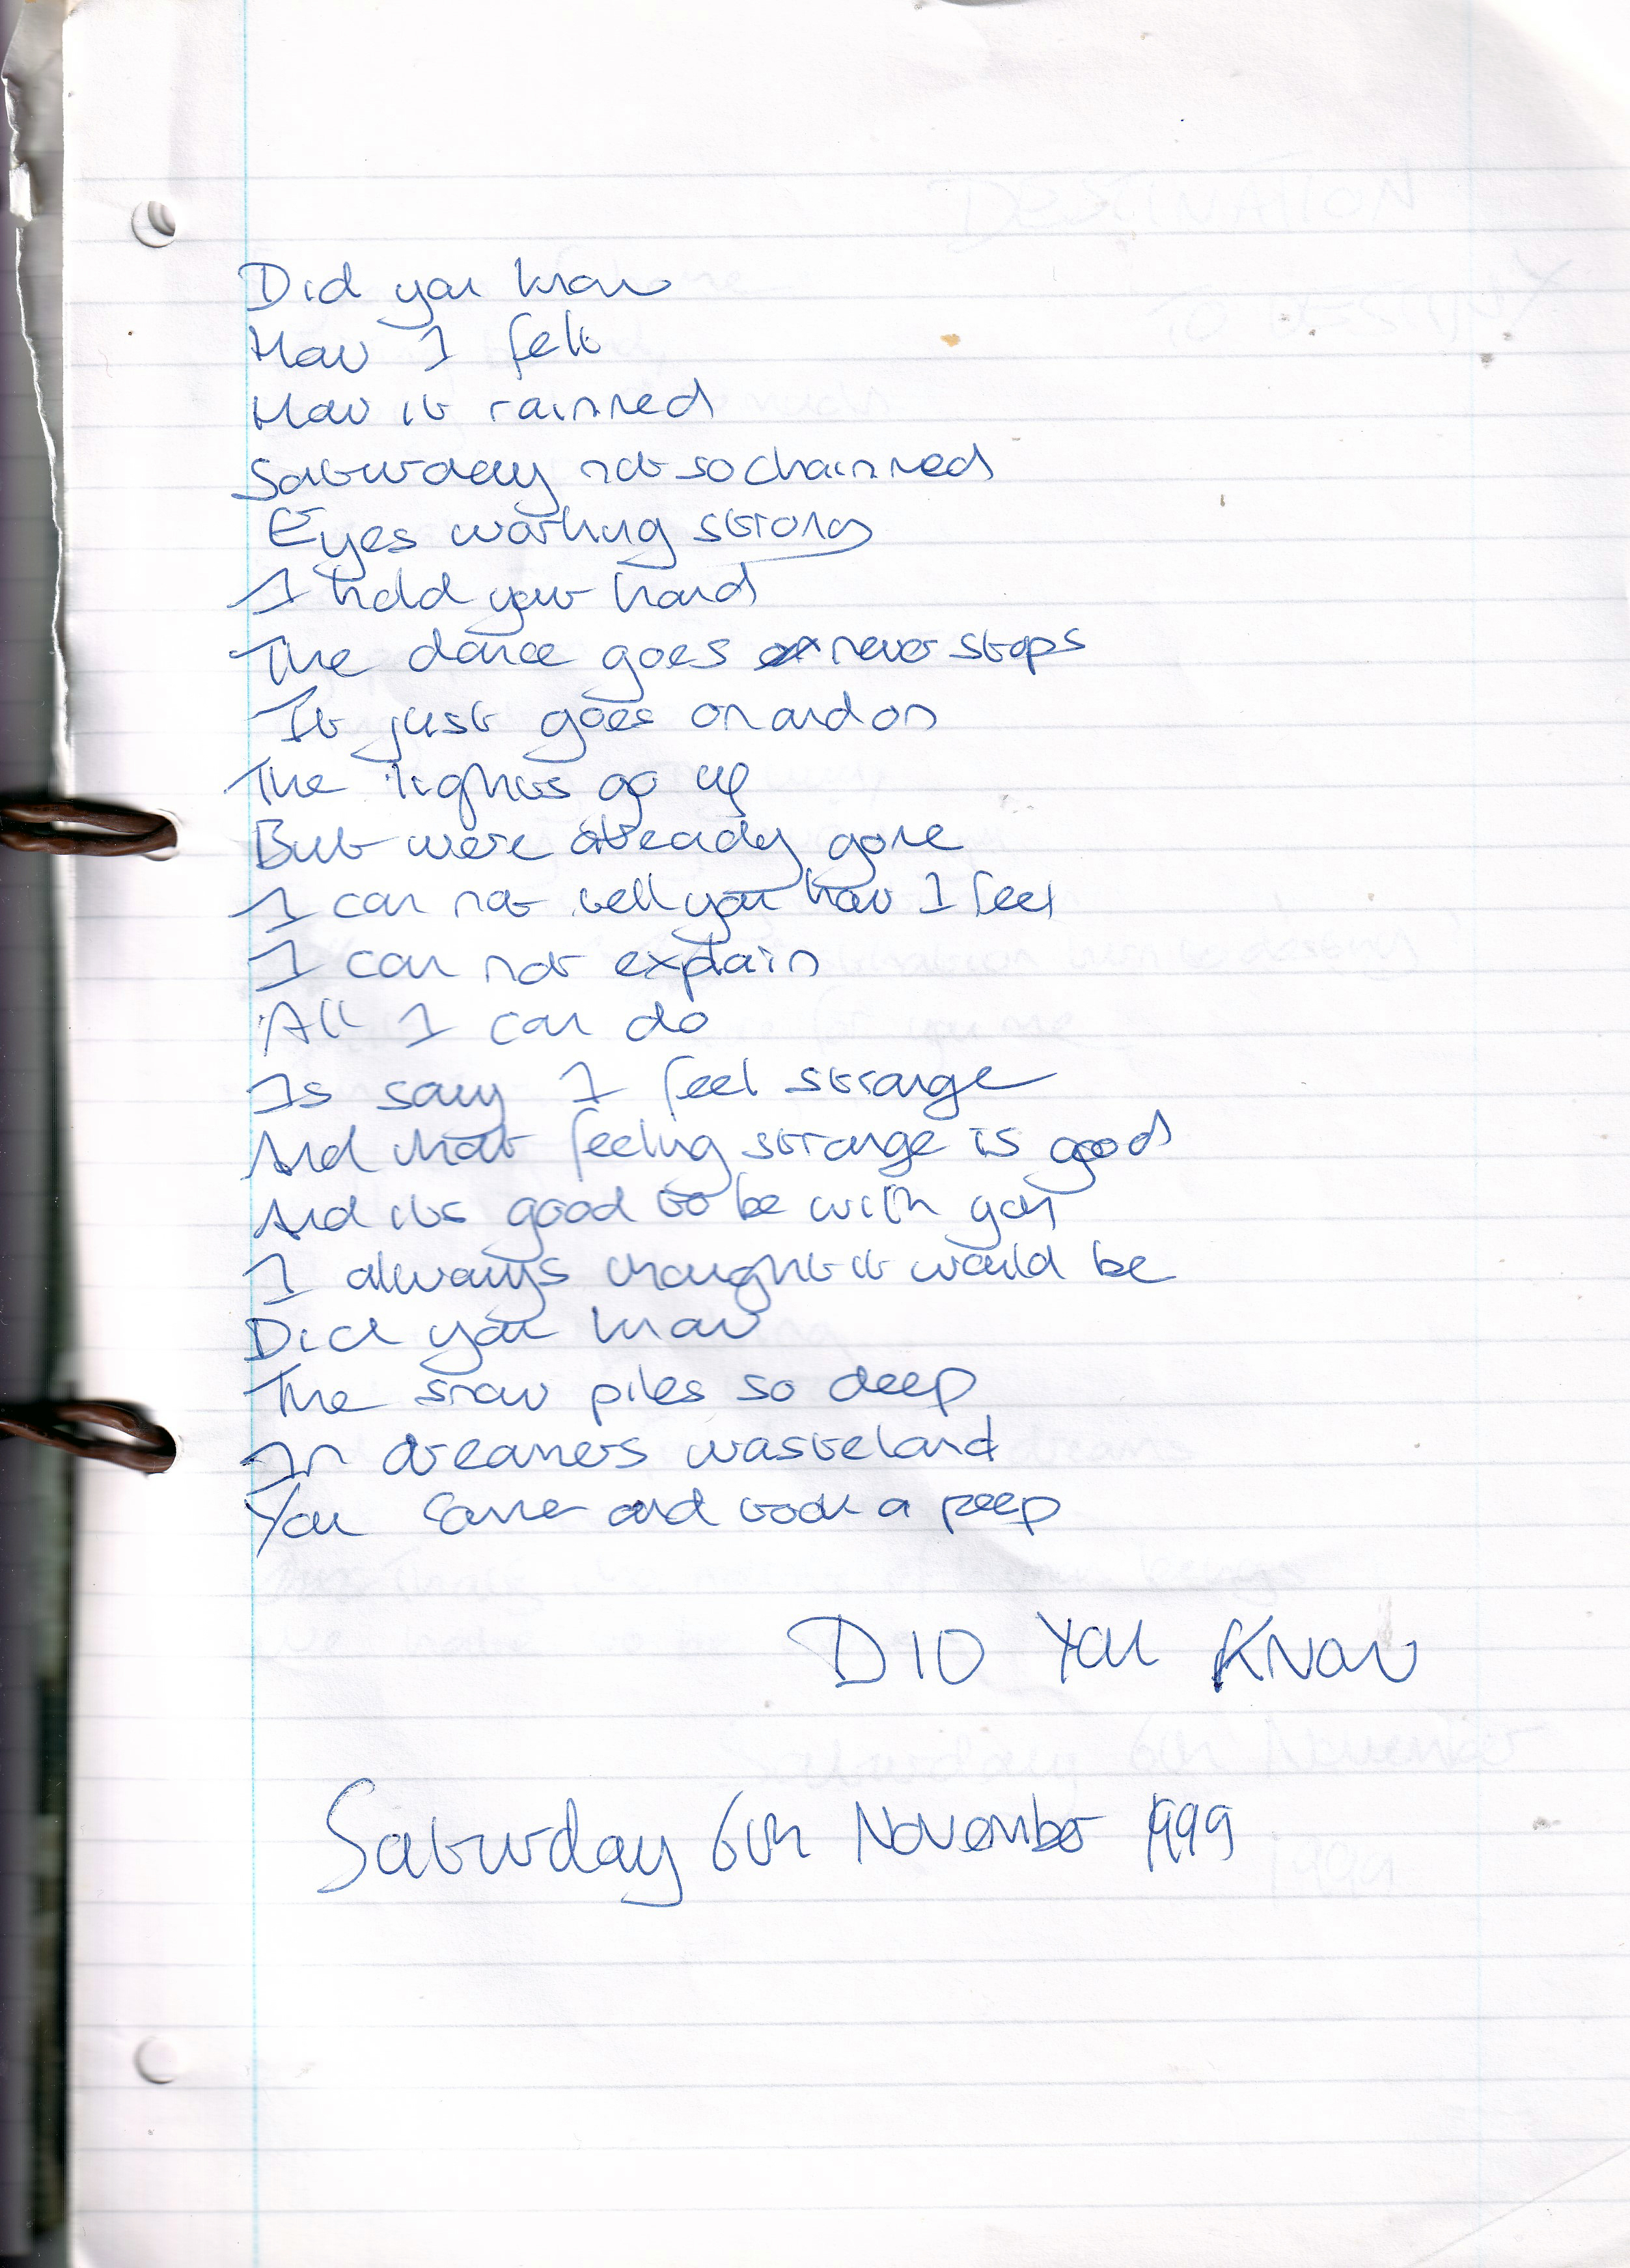 Did you know
How I felt
How it rainned
Saturday not so chainned
Eyes working strong
I hold your hand
The dance goes never stops
It just goes on and on
The lights go up
But were already gone
I can not tell you how I feel
I can not explain
All I can do
Is say I feel strange
And that feeling strange is good
And its good to be with you
I always thought it would be
Did you know
The snow piles so deep
In dreamers wasteland
You came and took a peep
DID YOU KNOW
Saturday 6th November 1999